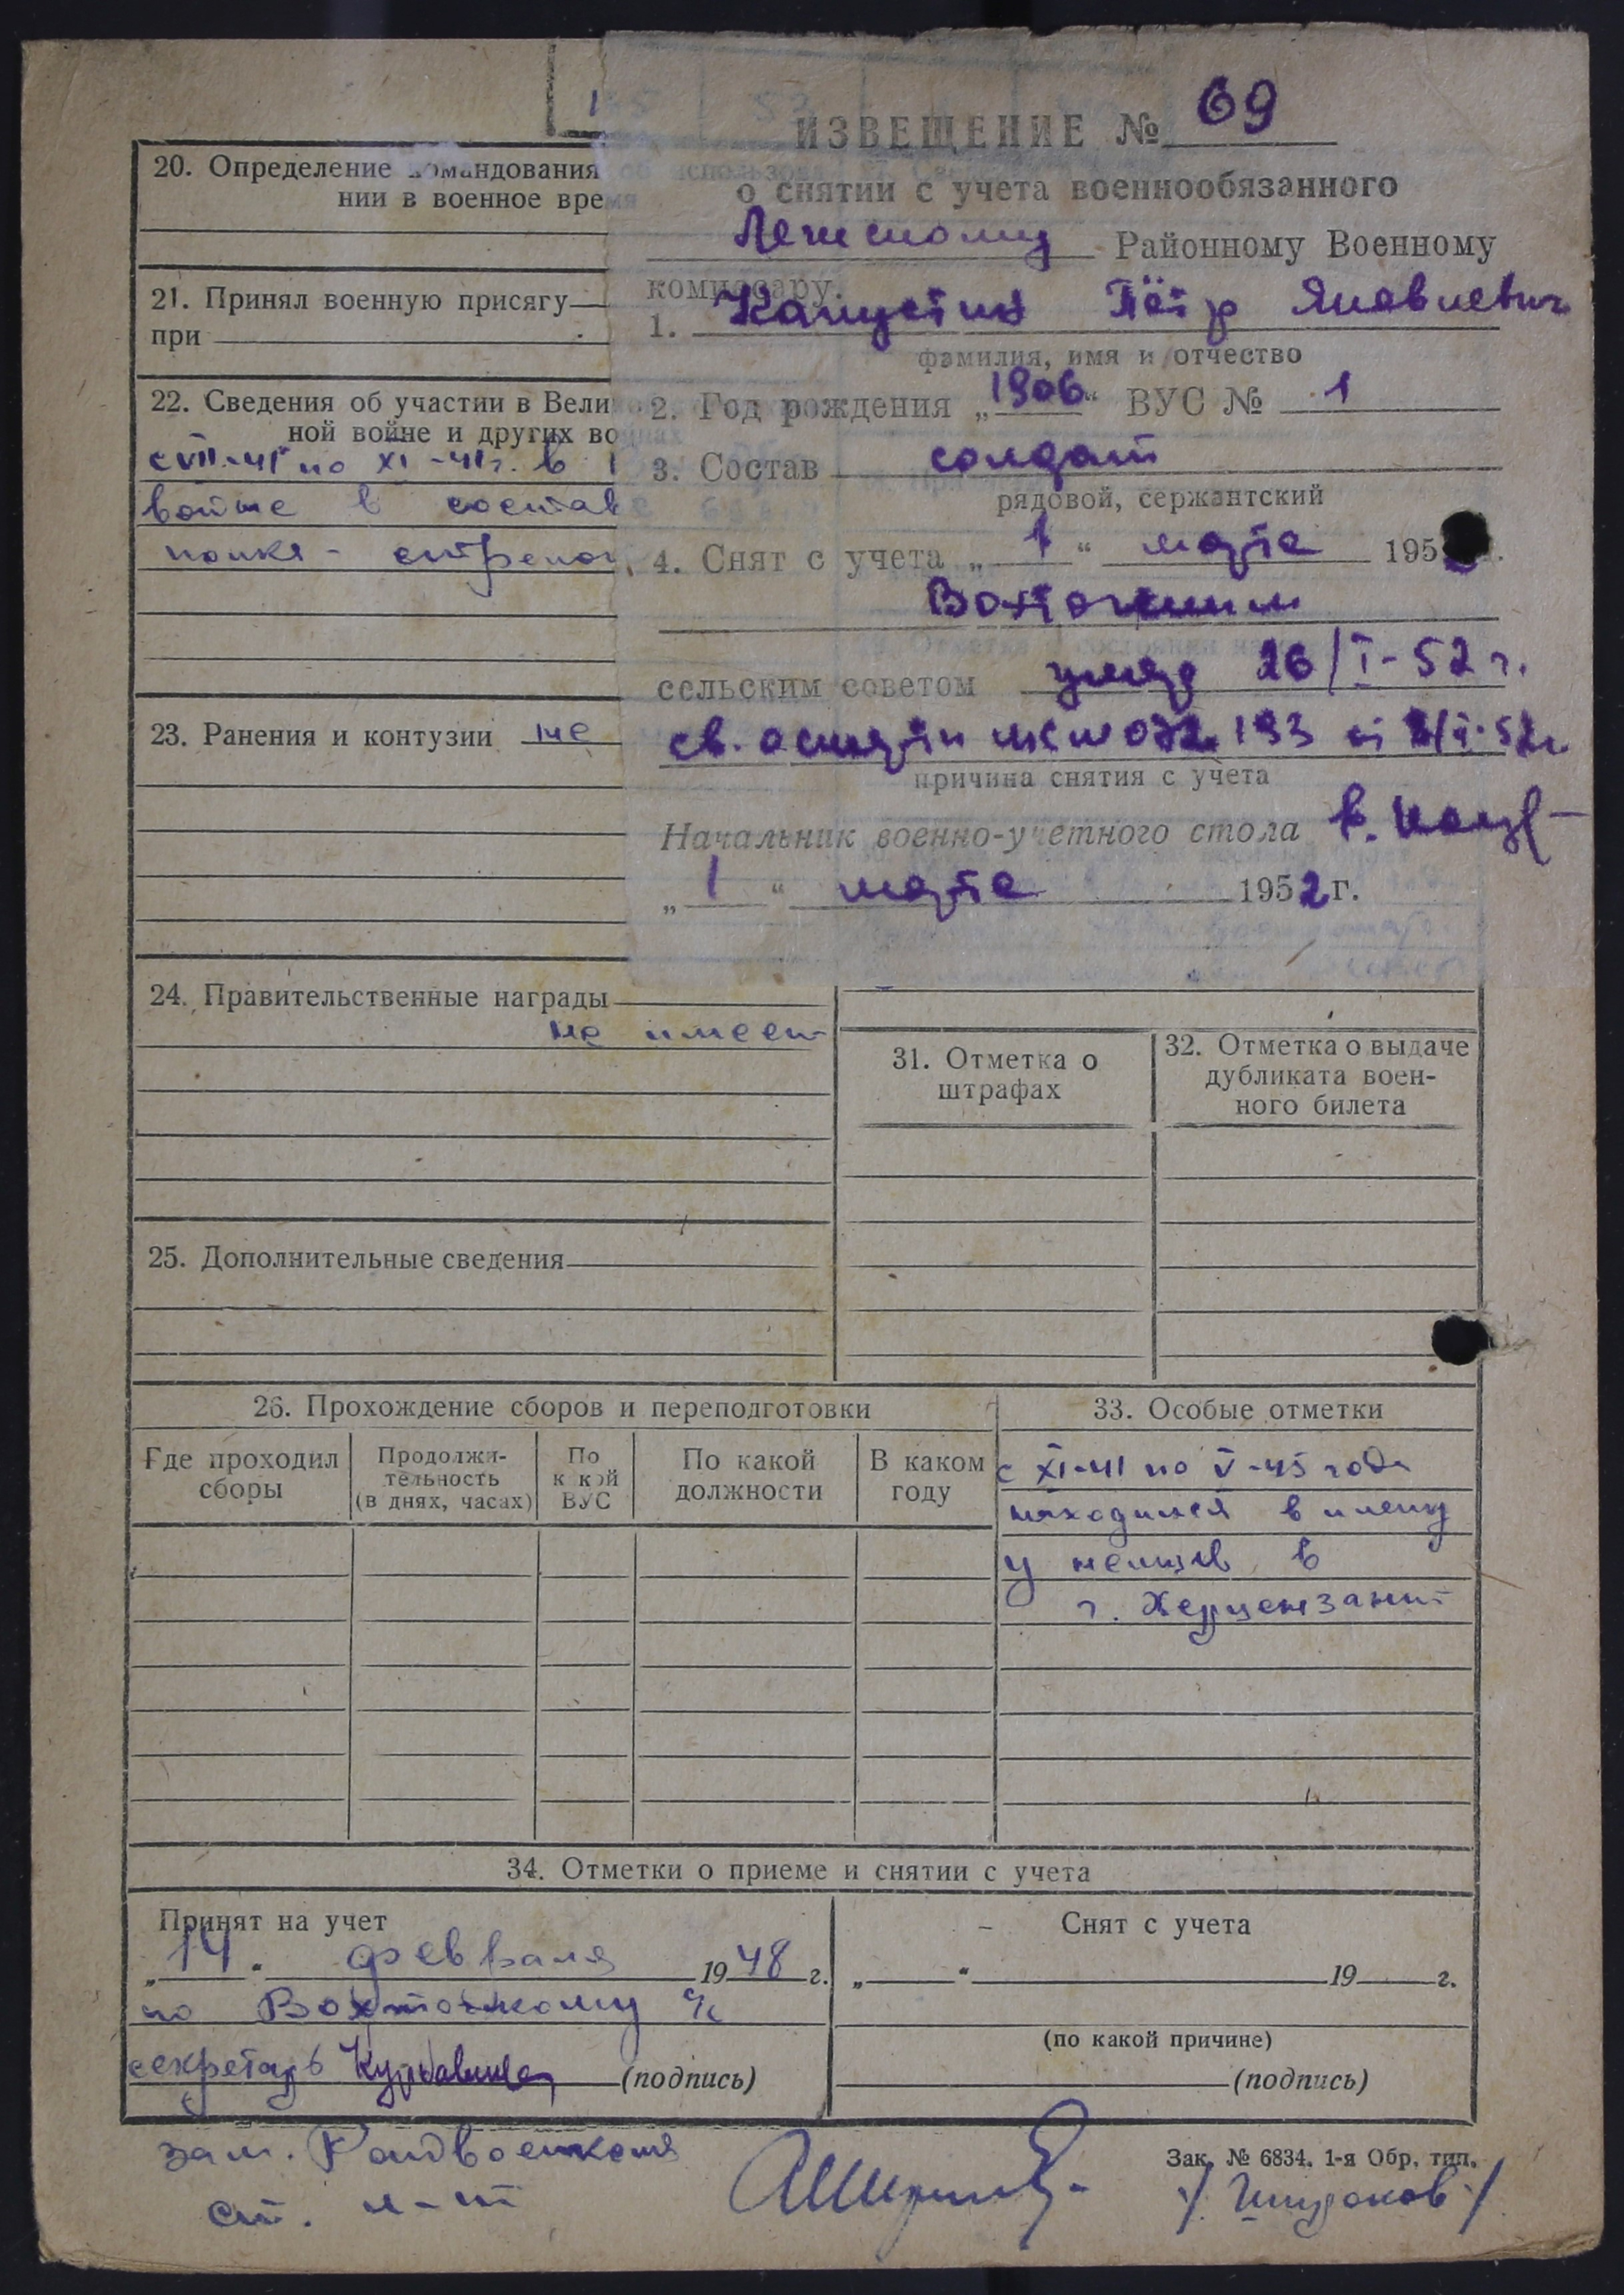 ИЗВЕЩЕНИЕ № 69
о снятии с учета военнообязанного
Районному Военному
комиссару.
1. Капустин Пётр Яковлевич
фамилия, имя и отчество
2. Год рождения „1906“ ВУС № 1
3. Состав солдат
рядовой, сержантский
4. Снят с учета „1“ марта 195
сельским советом умер 26/I-52 г.
св. о смерти 193
причина снятия с учета
Начальник военно-учетного стола
„1“ марта 1952 г.
20. Определение командования
нии в военное время
21. Принял военную присягу
при
22. Сведения об участии в Вели
ной войне и других войнах
с VII-41 по XI-41г. в
войне в составе
полка - стрелок
23. Ранения и контузии не
24. Правительственные награды
не имеет
25. Дополнительные сведения
31. Отметка о
штрафах
32. Отметка о выдаче
дубликата воен-
ного билета
26. Прохождение сборов и переподготовки
Где проходил
сборы
Продолжи-
тельность
(в днях, часах)
По
какой
ВУС
По какой
должности
В каком
году
33. Особые отметки
с XI-41 по V-45 года
находился в плену
у немцев в
г. Херцензант
34. Отметки о приеме и снятии с учета
Принят на учет
„14“ февраля 1948 г.
по Вохтожкому с/с
секретарь (подпись)
Снят с учета
„ “ 19 г.
(по какой причине)
(подпись)
зам. Райвоенкома
ст. л-т
Зак. № 6834. 1-я Обр. тип.